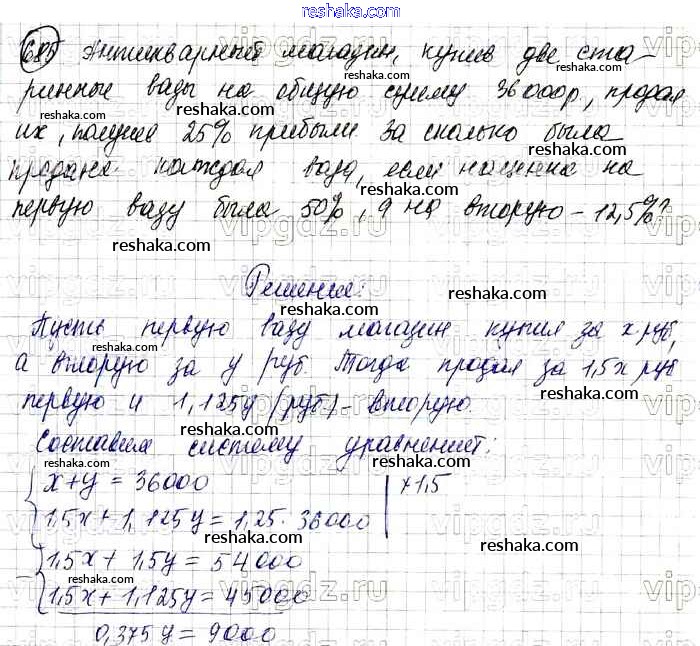 reshaka.com
reshaka.com
685 Антикварный магазин, купив две ста-
ринные вазы на общую сумму 36000р, продал
reshaka.com reshaka.com
их, получив 25% прибыли. За сколько была
reshaka.com
продана каждая ваза, если наценка на
первую вазу была 50%, а на вторую - 12,5%?
reshaka.com reshaka.com
Решение:
reshaka.com reshaka.com
Пусть первую вазу магазин купил за x руб,
а вторую за y руб. Тогда продал за 1,5x руб
reshaka.com reshaka.com
первую и 1,125y (руб) - вторую.
reshaka.com
Составим систему уравнений:
reshaka.com reshaka.com
x+y = 36000 | ×1,5
1,5x + 1,125y = 1,25 · 36000
reshaka.com
1,5x + 1,5y = 54000
reshaka.com reshaka.com
1,5x + 1,125y = 45000
reshaka.com
0,375y = 9000